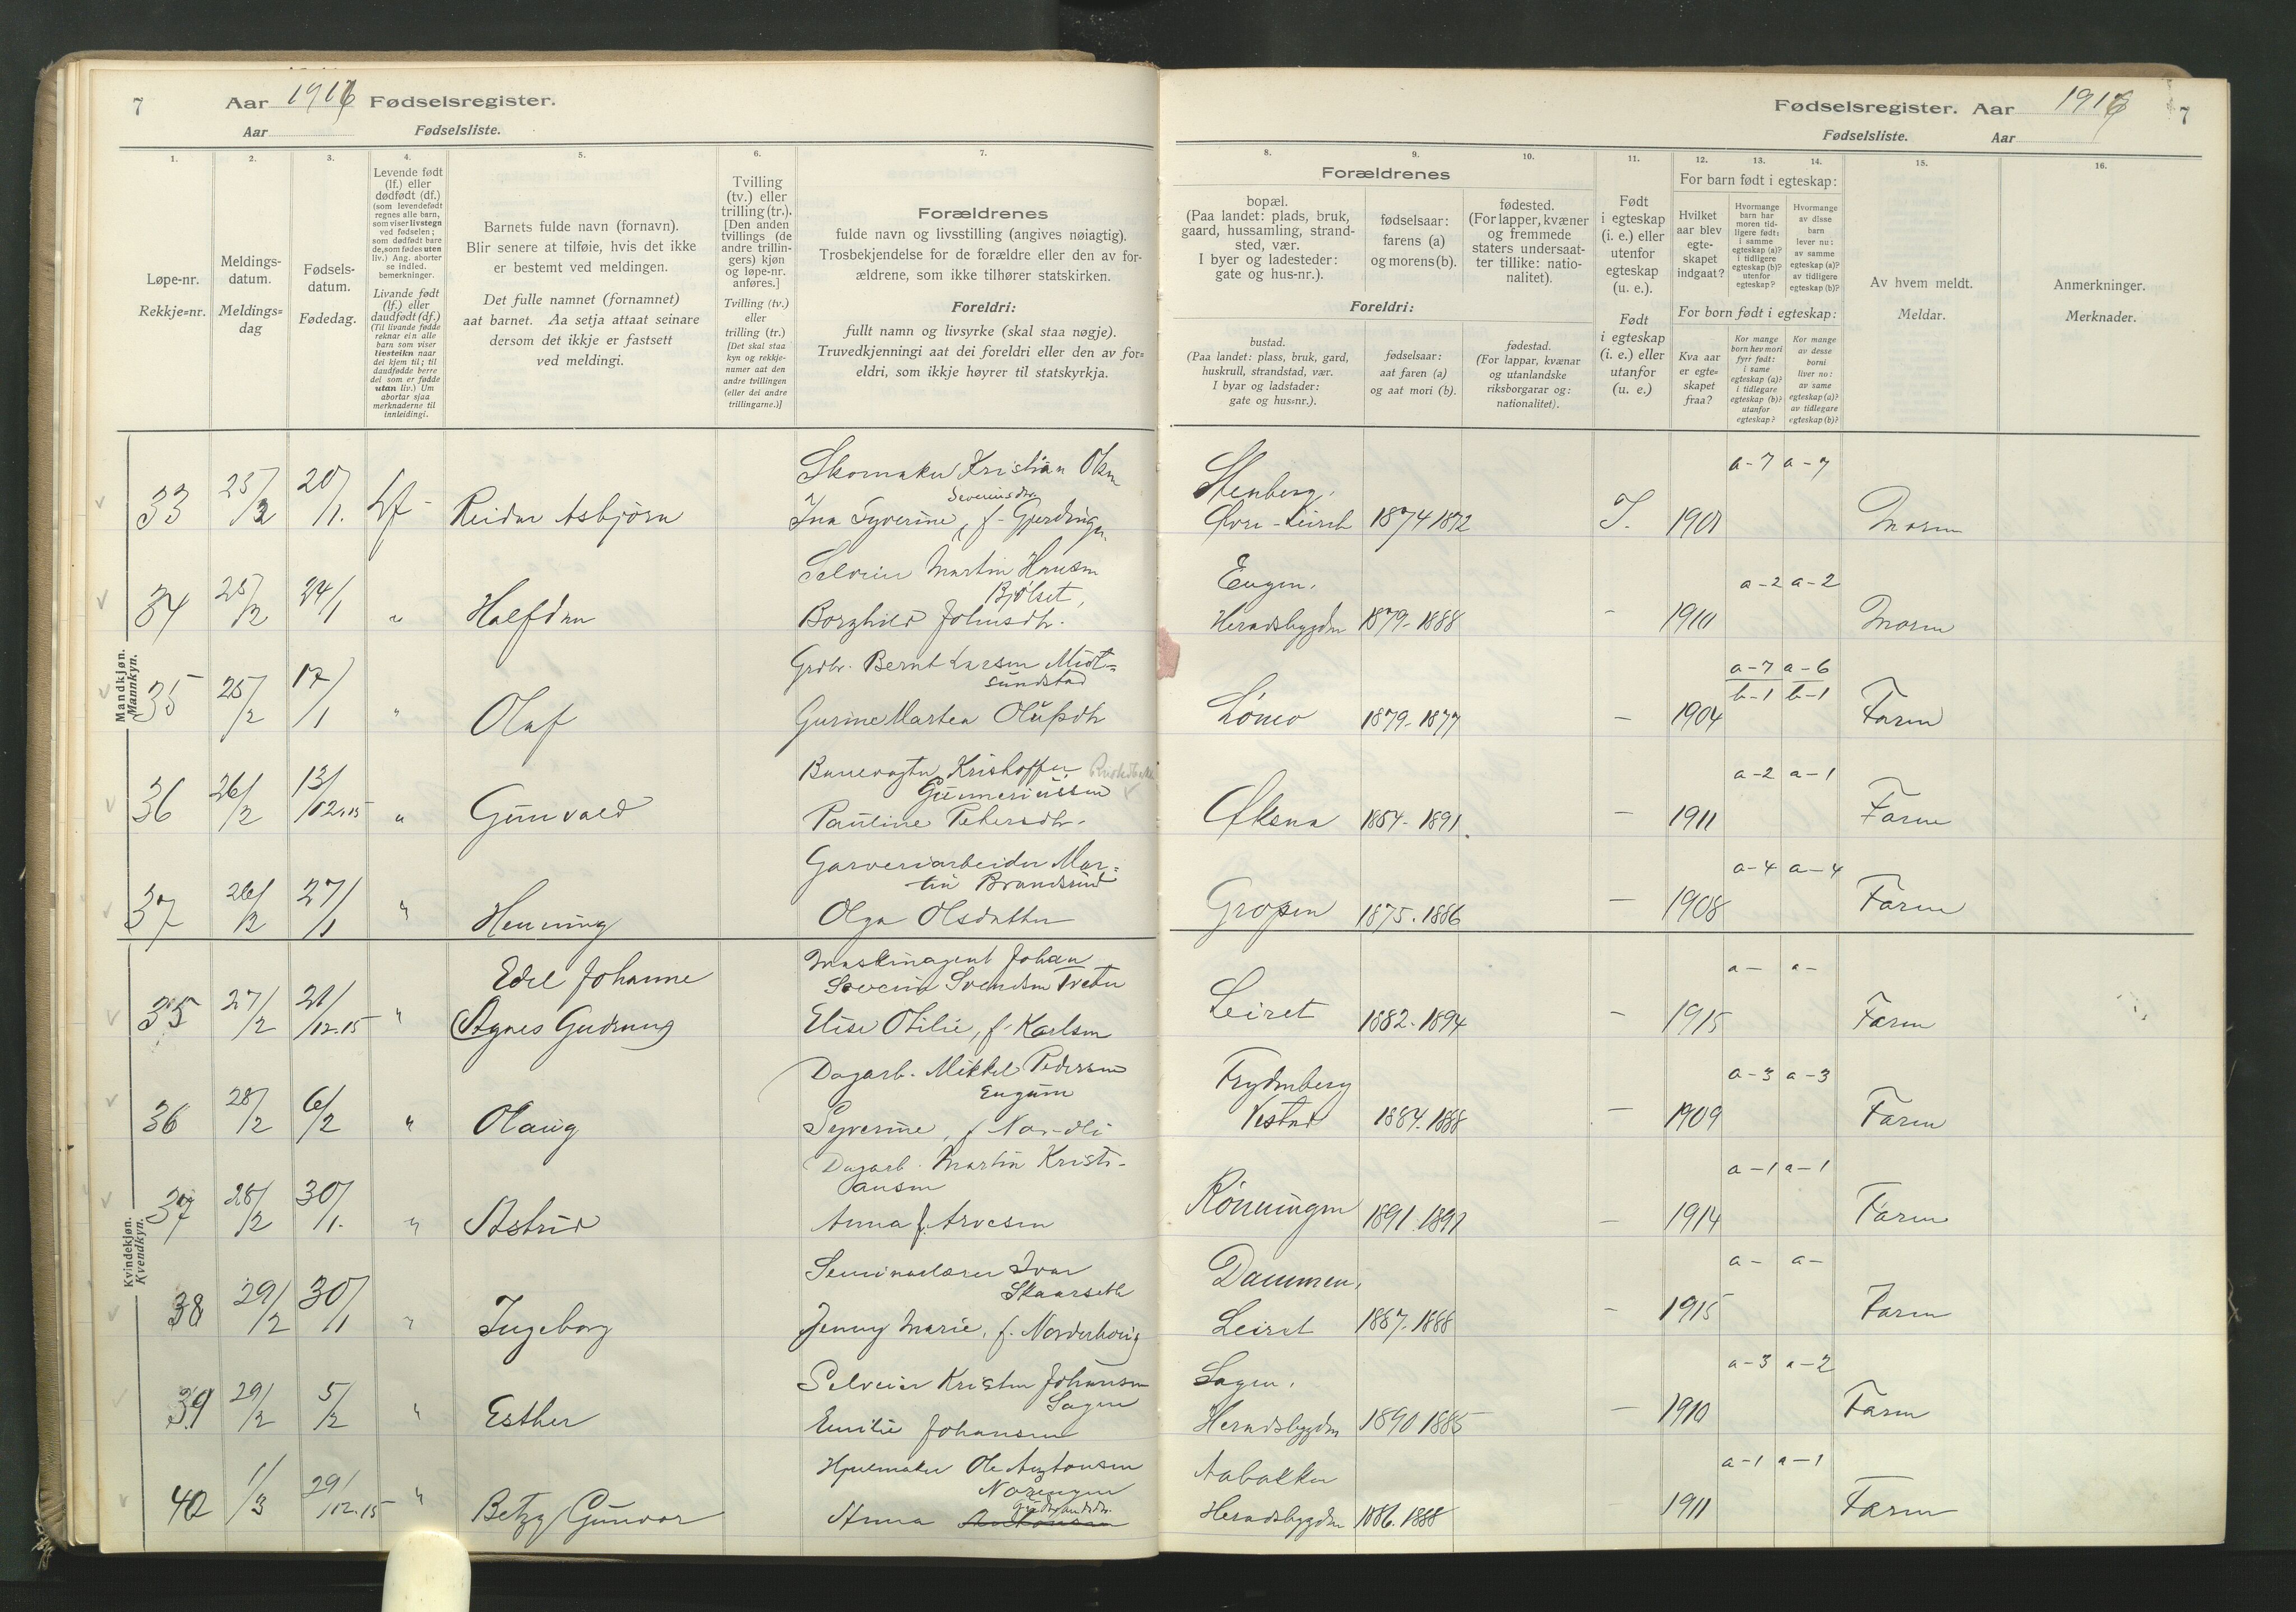 7 Aar 1916 Fødselsregister.
Aar Fødselsliste.
1. 2. 3. 4. 5. 6. 7.
Løpe-nr.
Rekkje=nr.
Meldings-
datum.
Meldings=
dag
Fødsels-
datum.
Fødedag.
Levende født
(lf.) eller
dødfødt (df.)
(som levendefødt
regnes alle barn,
som viser livstegn
ved fødselen;
som dødfødt bare
de, som fødes uten
liv.) Ang. aborter
se indled.
bemerkninger.
Livande født
(lf.) eller
daudfødt (df.)
(Til livande fødde
reknar ein alle
barn som viser
livsteikn naar
dei kjem til; til
daudfødde berre
dei som er fødde
utan liv.) Um
abortar sjaa
merknaderne til
innleidingi.
Barnets fulde navn (fornavn).
Blir senere at tilføie, hvis det ikke
er bestemt ved meldingen.
Det fulle namnet (fornamnet)
aat barnet. Aa setja attaat seinare
dersom det ikkje er fastsett
ved meldingi.
Tvilling
(tv.) eller
trilling (tr.).
[Den anden
tvillings (de
andre trillin-
gers) kjøn
og løpe-nr.
anføres.]
Tvilling (tv.)
eller
trilling (tr.)
[Det skal staa
kyn og rekkje-
numer aat den
andre tvillingen
(eller dei andre
trillingarne.)]
Forældrenes
fulde navn og livsstilling (angives nøiagtig).
Trosbekjendelse for de forældre eller den av for-
ældrene, som ikke tilhører statskirken.
Foreldri:
fullt namn og livsyrke (skal staa nøgje).
Truvedkjenningi aat dei foreldri eller den av for=
eldri, som ikkje høyrer til statskyrkja.
Mandkjøn.
Mannkyn.
33 25/2 20/1. Lf - Reidar Asbjørn
Skomaker Kristian Olsen
Severinsdtr.
Ina Syverine, f. Gjerdingen.
34 25/2 24/1 " Halfdan
Selveier Martin Hansen
Bjølset,
Borghild Johnsdtr.
35 25/2 17/1 " Olaf
Grdbr. Bernt Larsen Midt=
sundstad
Gurine Martea Olufsdtr
36 26/2 13/12.15 " Gunvald
Banevogter Kristoffer
Gunneriussen
Pauline Petersdtr.
37 26/2 27/1 " Henning
Garveriarbeider Mar=
tin Brandsrud
Olga Olsdatter
Kvindekjøn.
Kvendkyn.
35 27/2 21/12.15 " Edel Johanne
Agnes Gudrun
Maskinagent Johan
Severin Svendsen Tveter
Elise Otilie, f. Karlsen
36 28/2 6/2 " Olaug
Dagarb. Mikkel Pedersen
Engum
Syverine, f. Nordli
37 28/2 30/1. " Astrid
Dagarb. Martin Kristi-
ansen
Anna f. Arvesen
38 29/2 30/1 " Ingeborg
Seminarlærer Ivar
Skaarseth
Jenny Marie, f. Norderhaug
39 29/2 5/2 " Esther
Selveier Kristen Johansen
Sagen
Emilie Johansen
40 1/3 29/12.15 " Betzy Gunvor
Hjulmaker Ole Antonsen
Norengen
Anna
Fødselsregister. Aar 1916 7
Fødselsliste. Aar
8. 9. 10. 11. 12. 13. 14. 15. 16.
Forældrenes
bopæl.
(Paa landet: plads, bruk,
gaard, hussamling, strand-
sted, vær.
I byer og ladesteder:
gate og hus-nr.).
fødselsaar:
farens (a)
og morens (b).
fødested.
(For lapper, kvæner
og fremmede
staters undersaat-
ter tillike: natio-
nalitet).
Foreldri:
bustad.
(Paa landet: plass, bruk, gard,
huskrull, strandstad, vær.
I byar og ladstader:
gate og hus=nr.).
fødselsaar:
aat faren (a)
og aat mori (b).
fødestad.
(For lappar, kvænar
og utanlandske
riksborgarar og:
nationalitet).
Født
i egteskap
(i. e.) eller
utenfor
egteskap
(u. e.).
Født
i egteskap
(i. e.) eller
utanfor
(u. e.)
For barn født i egteskap:
Hvilket
aar blev
egte-
skapet
indgaat?
Hvormange
barn har
moren tid-
ligere født:
i samme
egteskap (a)?
i tidligere
egteskap (b)?
utenfor
egteskap?
Hvormange
av disse
barn
lever nu:
av samme
egteskap (a)?
av tidligere
egteskap (b)?
For born født i egteskap:
Kva aar
er egte=
skapet
fraa?
Kor mange
born hev mori
fyrr født:
i same
egteskap (a)?
i tidlegare
egteskap (b)?
utanfor
egteskap?
Kor mange
av desse
borni
liver no:
av same
egteskap (a)?
av tidlegare
egteskap (b)?
Av hvem meldt.
Meldar.
Anmerkninger.
Merknader.
Stenberg, a-7 a-7
Øvre-Leiret 1874 1872 I. 1901 Moren
Engen, a-2 a-2
Heradsbygden 1879-1888 - 1910 Moren
a-7 a-6
b-1 b-1
Lømo 1879-1877 - 1904 Faren
a-2 a-1
Øksna 1884-1891. - 1911 Faren
a-4 a-4
Gropen 1875.1886 - 1908 Faren
a- a-
Leiret 1882.1894 - 1915 Faren
Frydenberg a-3 a-3
Vestad 1884.1888 - 1909 Faren
a-1 a-1
Rønningen 1891.1891 - 1914 Faren
Dammen, a- a-
Leiret 1887.1888 - 1915 Faren
Sagen, a-3 a-2
Heradsbygden 1890 1885 - 1910 Faren
Aabakken a-1 a-1
Heradsbygden 1886.1888 1911 Faren